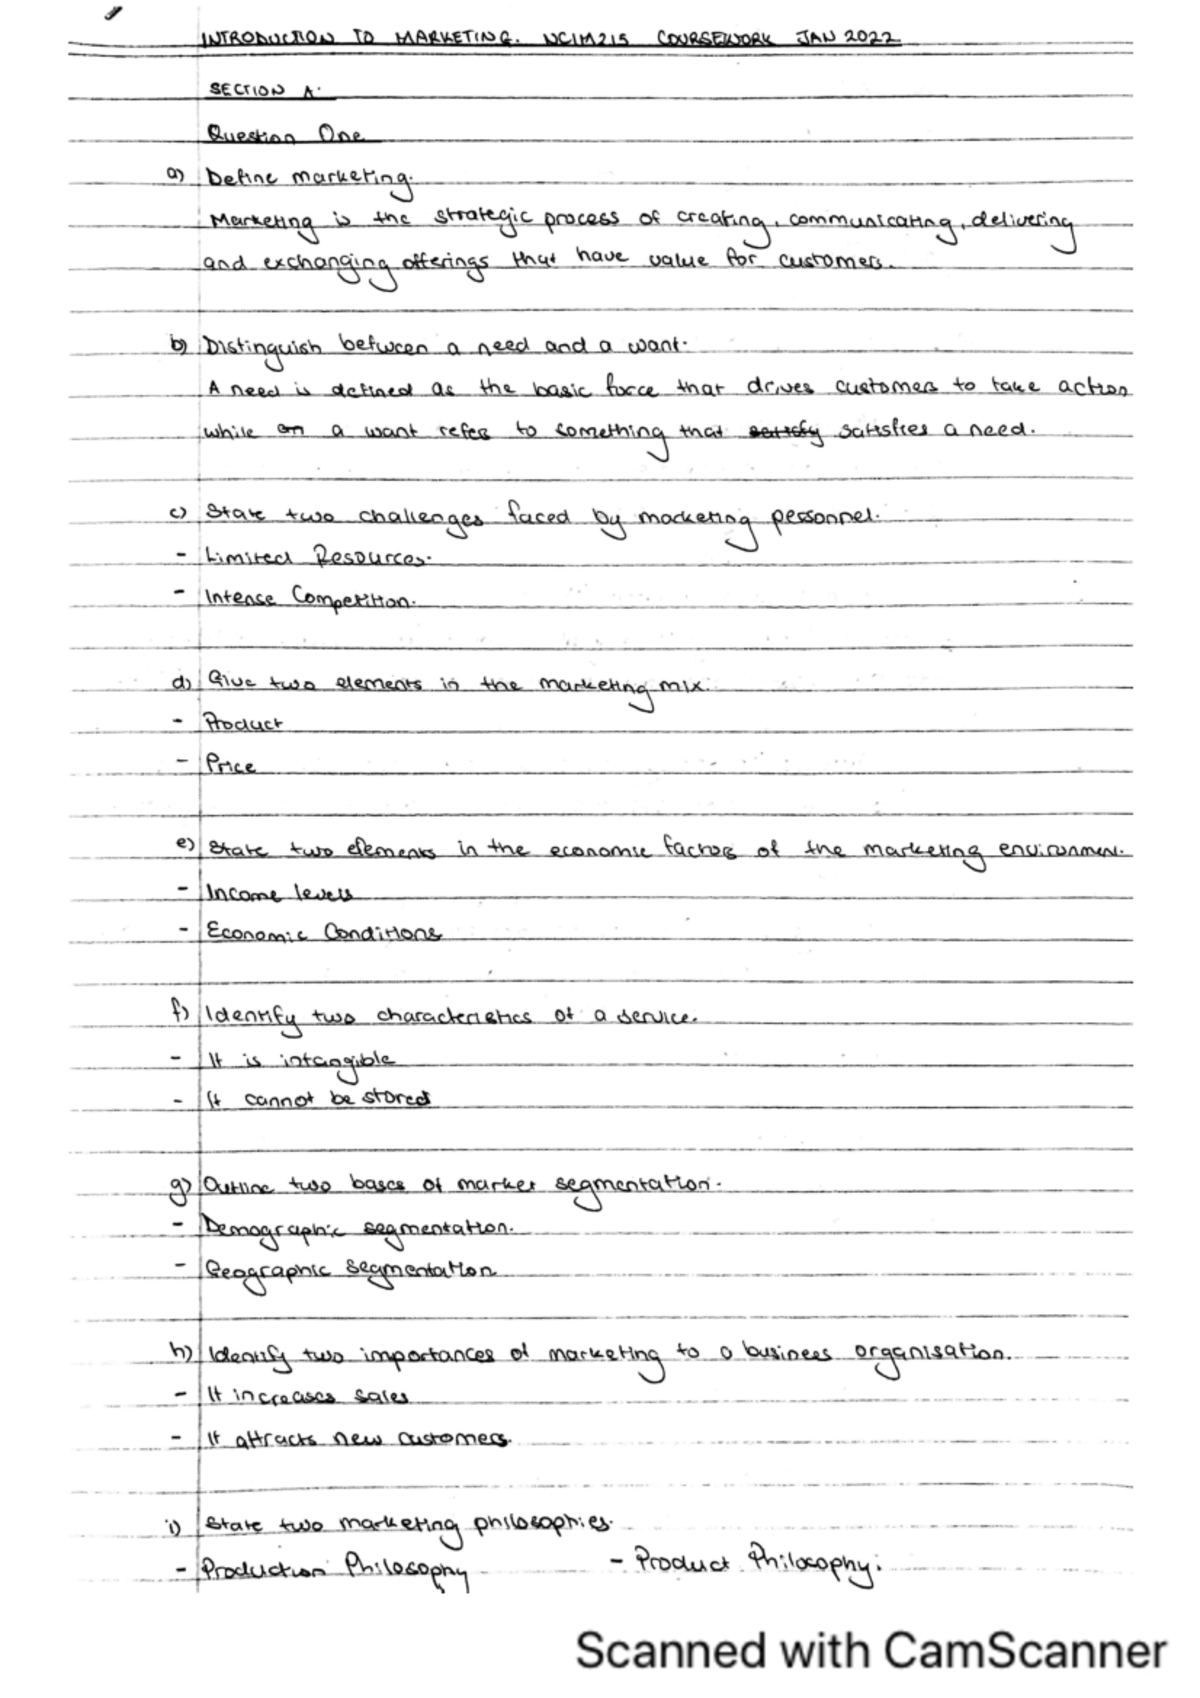 INTRODUCTION TO MARKETING. NCIM215 COURSEWORK JAN 2022
SECTION A.
Question One
a) Define marketing.
Marketing is the strategic process of creating, communicating, delivering
and exchanging offerings that have value for customers.
b) Distinguish between a need and a want.
A need is defined as the basic force that drives customers to take action
while an a want refers to something that satisfy satisfies a need.
c) State two challenges faced by marketing personnel.
- Limited Resources.
- Intense Competition.
d) Give two elements in the marketing mix.
- Product
- Price
e) State two elements in the economic factors of the marketing environment.
- Income levels
- Economic Conditions
f) Identify two characteristics of a service.
- It is intangible
- It cannot be stored
g) Outline two bases of market segmentation.
- Demographic segmentation.
- Geographic Segmentation
h) Identify two importances of marketing to a business organisation.
- It increases sales
- It attracts new customers.
i) State two marketing philosophies.
- Production Philosophy - Product Philosophy.
Scanned with CamScanner